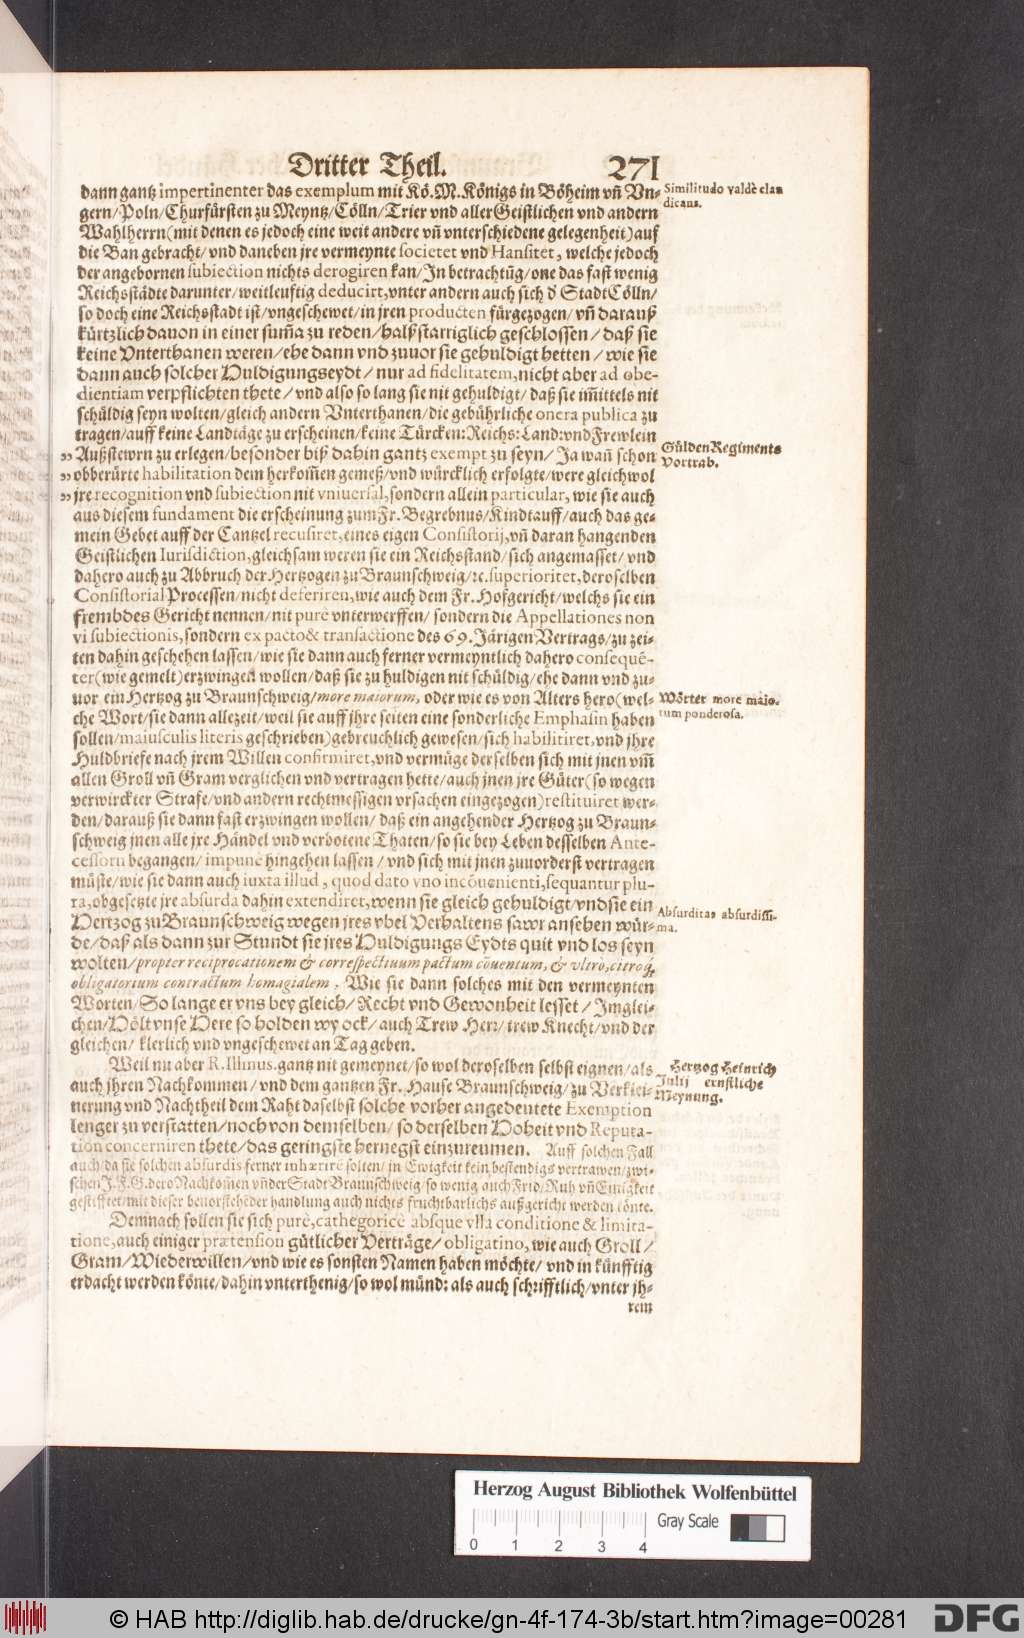 Dritter Theil. 271
dann gantz impertinenter das exemplum mit Kö. M. Königs in Böheim vñ Vn-
gern/Poln/Churfürsten zu Meyntz/Cölln/Trier vnd aller Geistlichen vnd andern
Wahlherrn(mit denen es jedoch eine weit andere vñ vnterschiedene gelegenheit)auf
die Ban gebracht/vnd daneben jre vermeynte societet vnd Hansitet, welche jedoch
der angebornen subiection nichts derogiren kan/In betrachtũg/one das fast wenig
Reichsstädte darunter/weitleuftig deducirt, vnter andern auch sich d' Stadt Cölln/
so doch eine Reichsstadt ist/vngeschewet/in jren producten fürgezogen/vñ darauß
kürtzlich dauon in einer sum̃a zu reden/halßstarriglich geschlossen/daß sie
keine Vnterthanen weren/ehe dann vnd zuuor sie gehuldigt hetten/wie sie
dann auch solcher Huldigungseydt/nur ad fidelitatem, nicht aber ad obe-
dientiam verpflichten thete/vnd also so lang sie nit gehuldigt/daß sie im̃ittels nit
schüldig seyn wolten/gleich andern Vnterthanen/die gebührliche onera publica zu
tragen/auff keine Landtäge zu erscheinen/keine Türcken: Reichs: Land: vnd Frewlein
„ Außstewrn zu erlegen/besonder biß dahin gantz exempt zu seyn/Ja wañ schon
„ obberürte habilitation dem herkom̃en gemeß/vnd würcklich erfolgte/were gleichwol
„ jre recognition vnd subiection nit vniuersal, sondern allein particular, wie sie auch
aus diesem fundament die erscheinung zum Fr. Begrebnus/Kindtauff/auch das ge-
mein Gebet auff der Cantzel recusiret, eines eigen Consistorij, vñ daran hangenden
Geistlichen Iurisdiction, gleichsam weren sie ein Reichsstand/sich angemasset/vnd
dahero auch zu Abbruch der Hertzogen zu Braunschweig/ꝛc. superioritet, deroselben
Consistorial Processen/nicht deferiren, wie auch dem Fr. Hofgericht/welchs sie ein
frembdes Gericht nennen/nit purè vnterwerffen/sondern die Appellationes non
vi subiectionis, sondern ex pacto & transactione des 69. Järigen Vertrags/zu zei-
ten dahin geschehen lassen/wie sie dann auch ferner vermeyntlich dahero consequē-
ter(wie gemelt)erzwingen wollen/daß sie zu huldigen nit schüldig/ehe dann vnd zu-
uor ein Hertzog zu Braunschweig/more maiorum, oder wie es von Alters hero(wel-
che Wort/sie dann allezeit/weil sie auff jhre seiten eine sonderliche Emphasin haben
sollen/maiusculis literis geschrieben)gebreuchlich gewesen/sich habilitiret, vnd jhre
Huldbriefe nach jrem Willen confirmiret, vnd vermüge derselben sich mit jnen vm̃
allen Groll vñ Gram verglichen vnd vertragen hette/auch jnen jre Güter(so wegen
verwirckter Strafe/vnd andern rechtmessigen vrsachen eingezogen)restituiret wer-
den/darauß sie dann fast erzwingen wollen/daß ein angehender Hertzog zu Braun-
schweig jnen alle jre Händel vnd verbotene Thaten/so sie bey Leben desselben Ante-
cessorn begangen/impunè hingehen lassen/vnd sich mit jnen zuuorderst vertragen
müste/wie sie dann auch iuxta illud, quod dato vno incōuenienti, sequantur plu-
ra, obgesetzte jre absurda dahin extendiret, wenn sie gleich gehuldigt/vnd sie ein
Hertzog zu Braunschweig wegen jres vbel Verhaltens sawr ansehen wür-
de/daß als dann zur Stundt sie jres Huldigungs Eydts quit vnd los seyn
wolten/propter reciprocationem & correspectiuum pactum cōuentum, & vltrò, citroq́;
obligatorium contractum homagialem. Wie sie dann solches mit den vermeynten
Worten/So lange er vns bey gleich/Recht vnd Gewonheit lesset/Imglei-
chen/Hölt vnse Here so holden wy ock/auch Trew Herr/trew Knecht/vnd der
gleichen/klerlich vnd vngeschewet an Tag geben.
Weil nu aber R. Illmus. gantz nit gemeynet/so wol deroselben selbst eignen/als
auch jhren Nachkommen/vnd dem gantzen Fr. Hause Braunschweig/zu Verklei-
nerung vnd Nachtheil dem Raht daselbst solche vorher angedeutete Exemption
lenger zu verstatten/noch von demselben/so derselben Hoheit vnd Reputa-
tion concerniren thete/das geringste hernegst einzureumen. Auff solchen Fall
auch/da sie solchen absurdis ferner inhæriré solten/in Ewigkeit kein bestendigs vertrawen/zwi-
schen J. F. G. dero Nachkom̃en vñ der Stadt Braunschweig/so wenig auch Frid/Ruh vñ Einigkeit
gestifftet/mit dieser beuorstehēder handlung auch nichts fruchtbarlichs außgericht werden könte.
Demnach sollen sie sich purè, cathegoricè absque vlla conditione & limita-
tione, auch einiger prætension gütlicher Verträge/obligatino, wie auch Groll/
Gram/Wiederwillen/vnd wie es sonsten Namen haben möchte/vnd in künfftig
erdacht werden könte/dahin vnterthenig/so wol münd: als auch schrifftlich/vnter jh-
rem
Similitudo valdè clau
dicans.
Gülden Regiments
Vortrab.
Wörter more maio-
rum ponderosa.
Absurditas absurdissi-
ma.
Hertzog Heinrich
Julij ernstliche
Meynung.
Herzog August Bibliothek Wolfenbüttel
Gray Scale
0 1 2 3 4
© HAB http://diglib.hab.de/drucke/gn-4f-174-3b/start.htm?image=00281
DFG